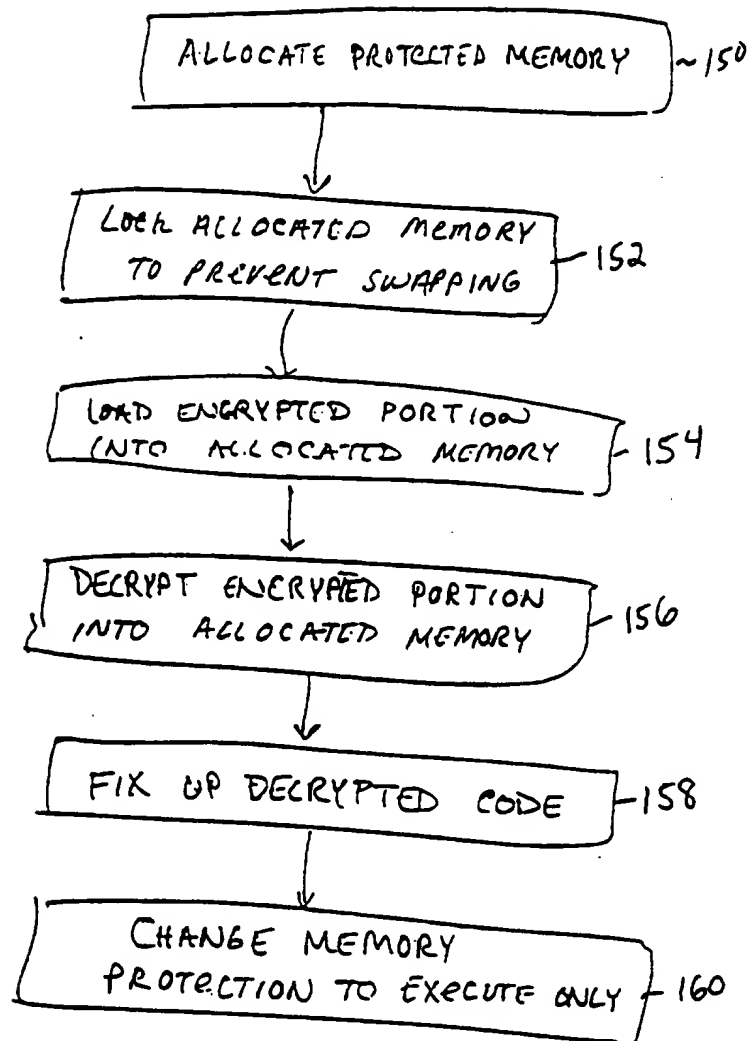 ALLOCATE PROTECTED MEMORY ~150
LOCK ALLOCATED MEMORY
TO PREVENT SWAPPING
152
LOAD ENCRYPTED PORTION
INTO ALLOCATED MEMORY
154
DECRYPT ENCRYPTED PORTION
INTO ALLOCATED MEMORY
156
FIX UP DECRYPTED CODE
158
CHANGE MEMORY
PROTECTION TO EXECUTE ONLY
160